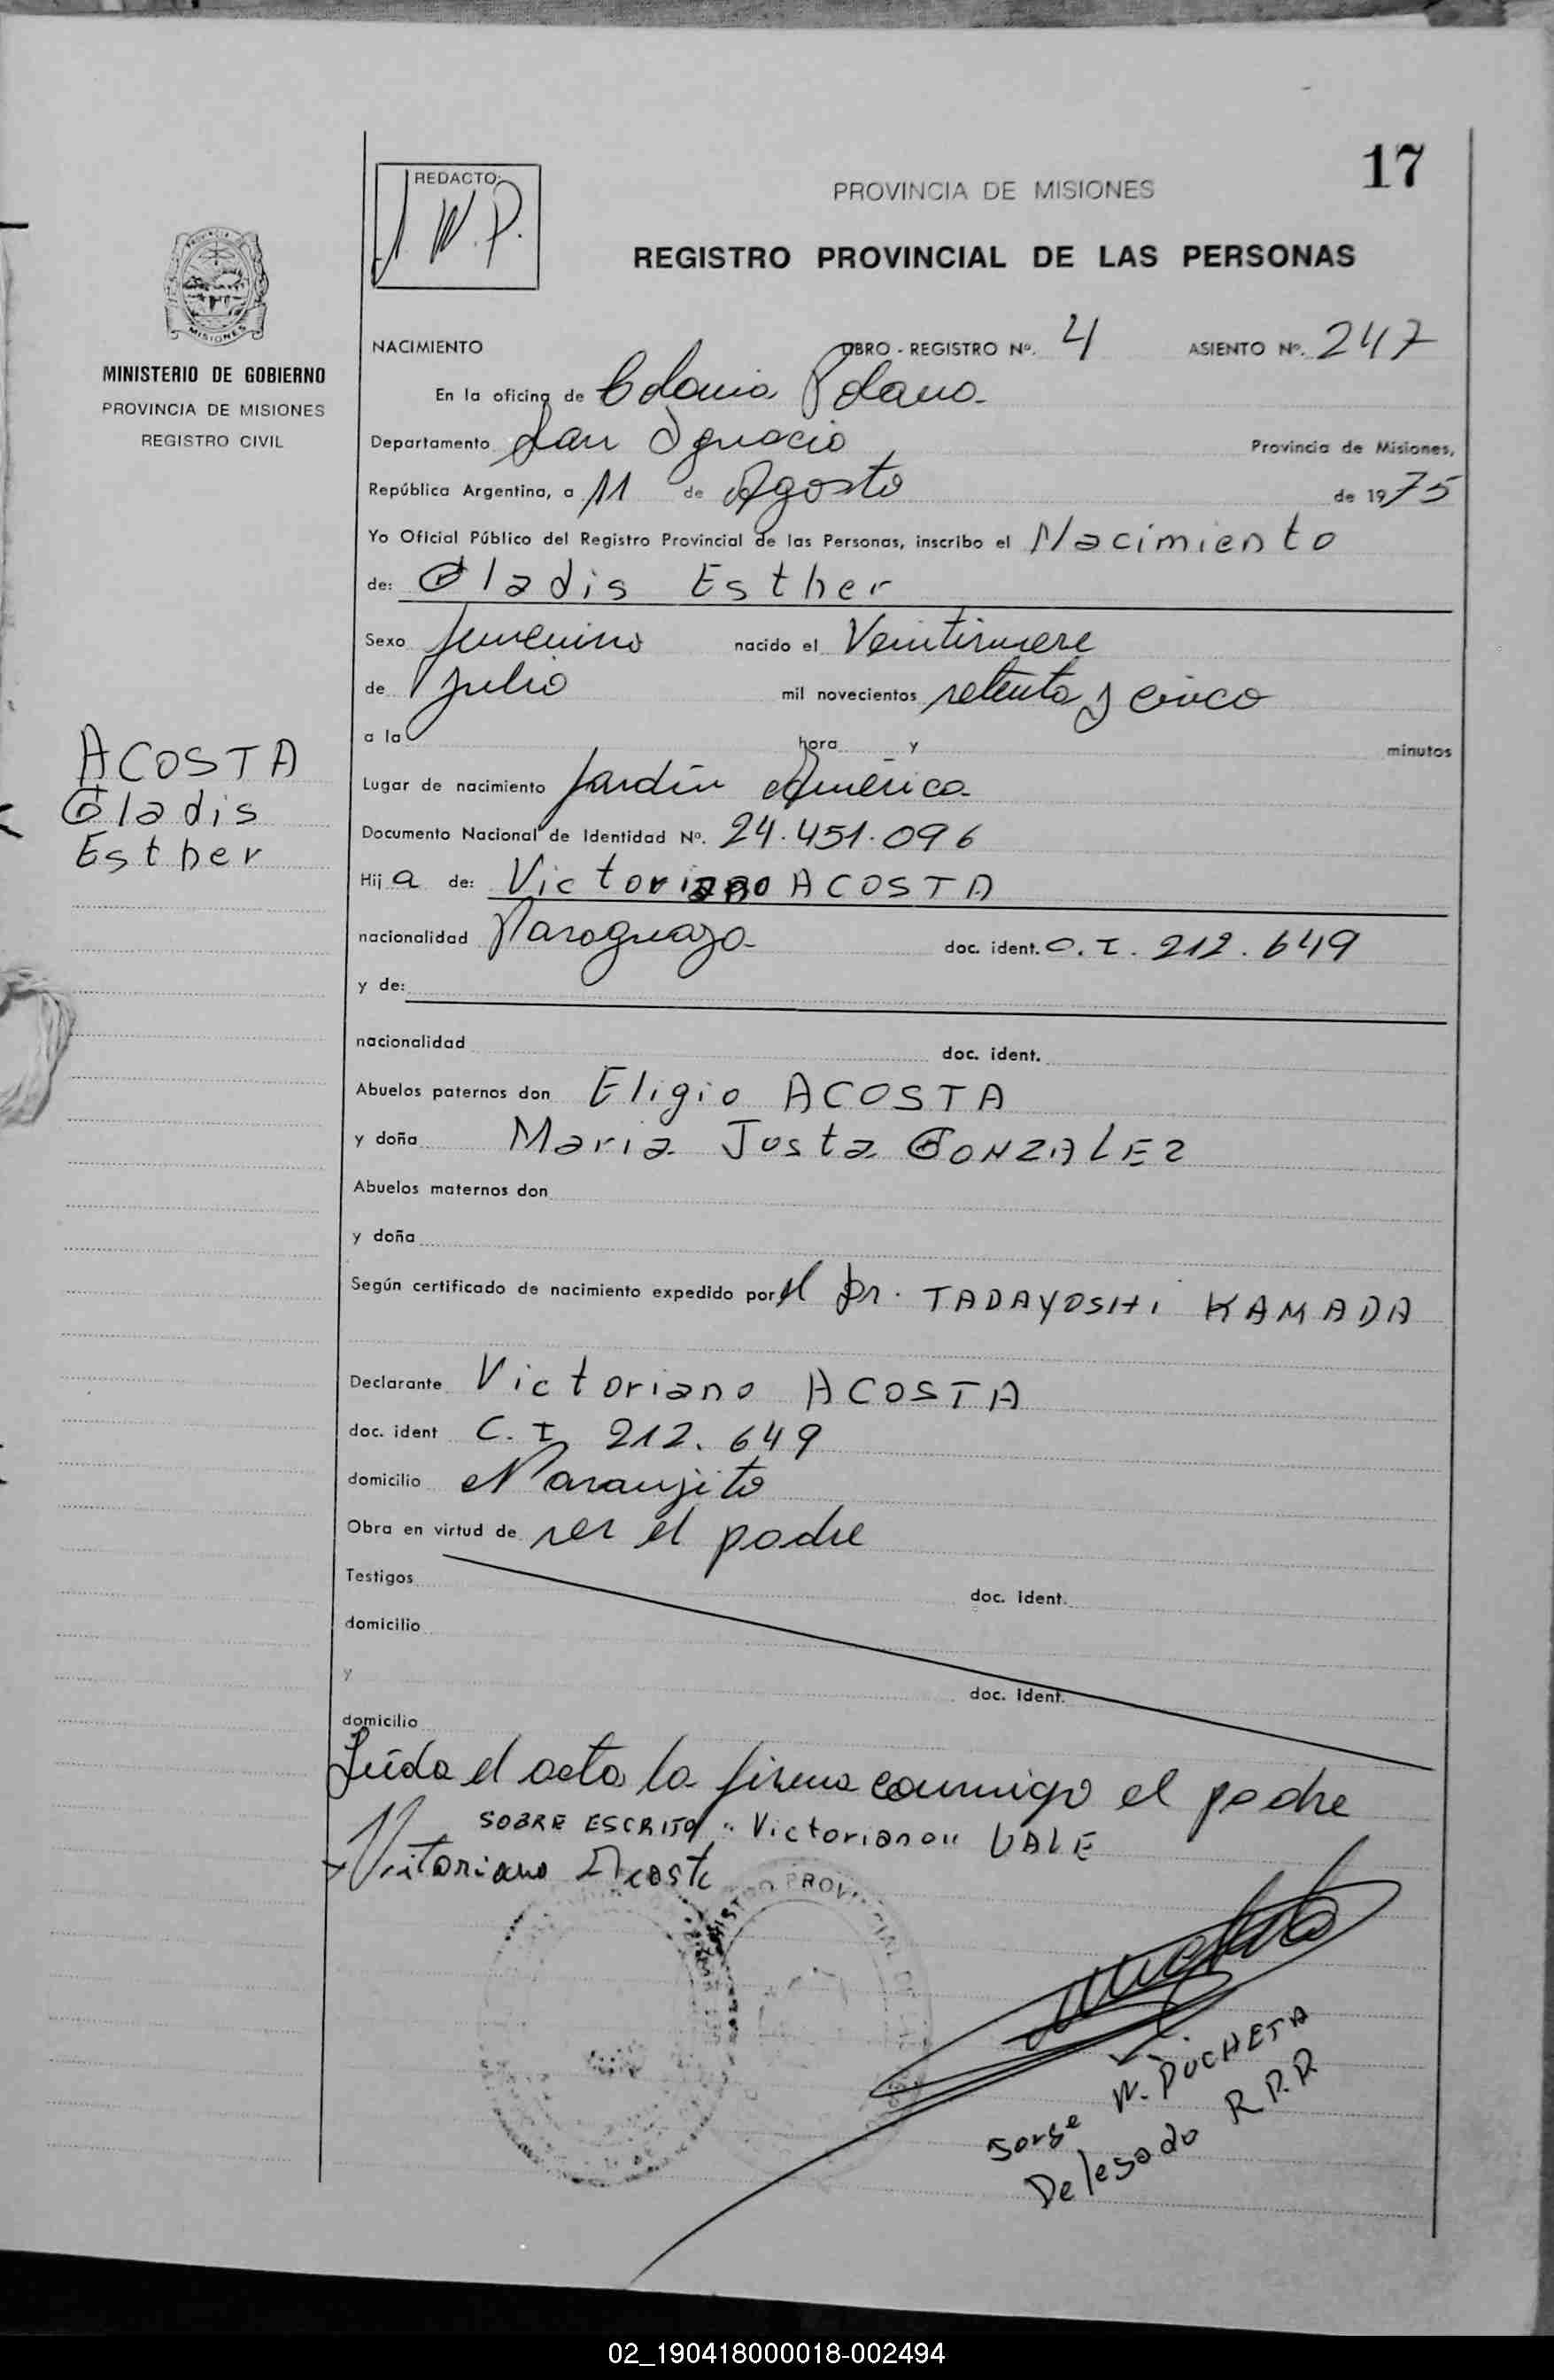 17
REDACTO:
J W. P.
PROVINCIA DE MISIONES
REGISTRO PROVINCIAL DE LAS PERSONAS
MISIONES
MINISTERIO DE GOBIERNO
PROVINCIA DE MISIONES
REGISTRO CIVIL
NACIMIENTO LIBRO - REGISTRO Nº. 4 ASIENTO Nº. 247
En la oficina de Colonia Polana
Departamento San Ignacio Provincia de Misiones,
República Argentina, a 11 de Agosto de 1975
Yo Oficial Público del Registro Provincial de las Personas, inscribo el Nacimiento
de: Gladis Esther
Sexo femenino nacido el Veintinueve
de Julio mil novecientos setenta y cinco
a la hora y minutos
ACOSTA
Gladis
Esther
Lugar de nacimiento Jardín América
Documento Nacional de Identidad Nº. 24.451.096
Hija de: Victoriano ACOSTA
nacionalidad Paraguaya doc. ident. C. I. 212.649
y de:
nacionalidad doc. ident.
Abuelos paternos don Eligio ACOSTA
y doña Maria Justa GONZALEZ
Abuelos maternos don
y doña
Según certificado de nacimiento expedido por el Dr. TADAYOSHI KAMADA
Declarante Victoriano ACOSTA
doc. ident C. I 212.649
domicilio Naranjito
Obra en virtud de ser el padre
Testigos doc. ident.
domicilio
y doc. ident.
domicilio
Leída el acta la firma conmigo el padre
SOBRE ESCRITO "Victoriano" VALE
Vitoriano Acosta
Jorge W. DUCHETA
Delegado R.P.P
02_190418000018-002494